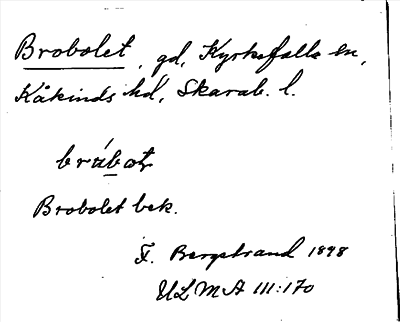 Brobolet, gd, Kyrkefalla sn,
Kåkinds hd, Skarab. l.
Brobolet bek.
F. Bergstrand 1898
ULMA 111:170